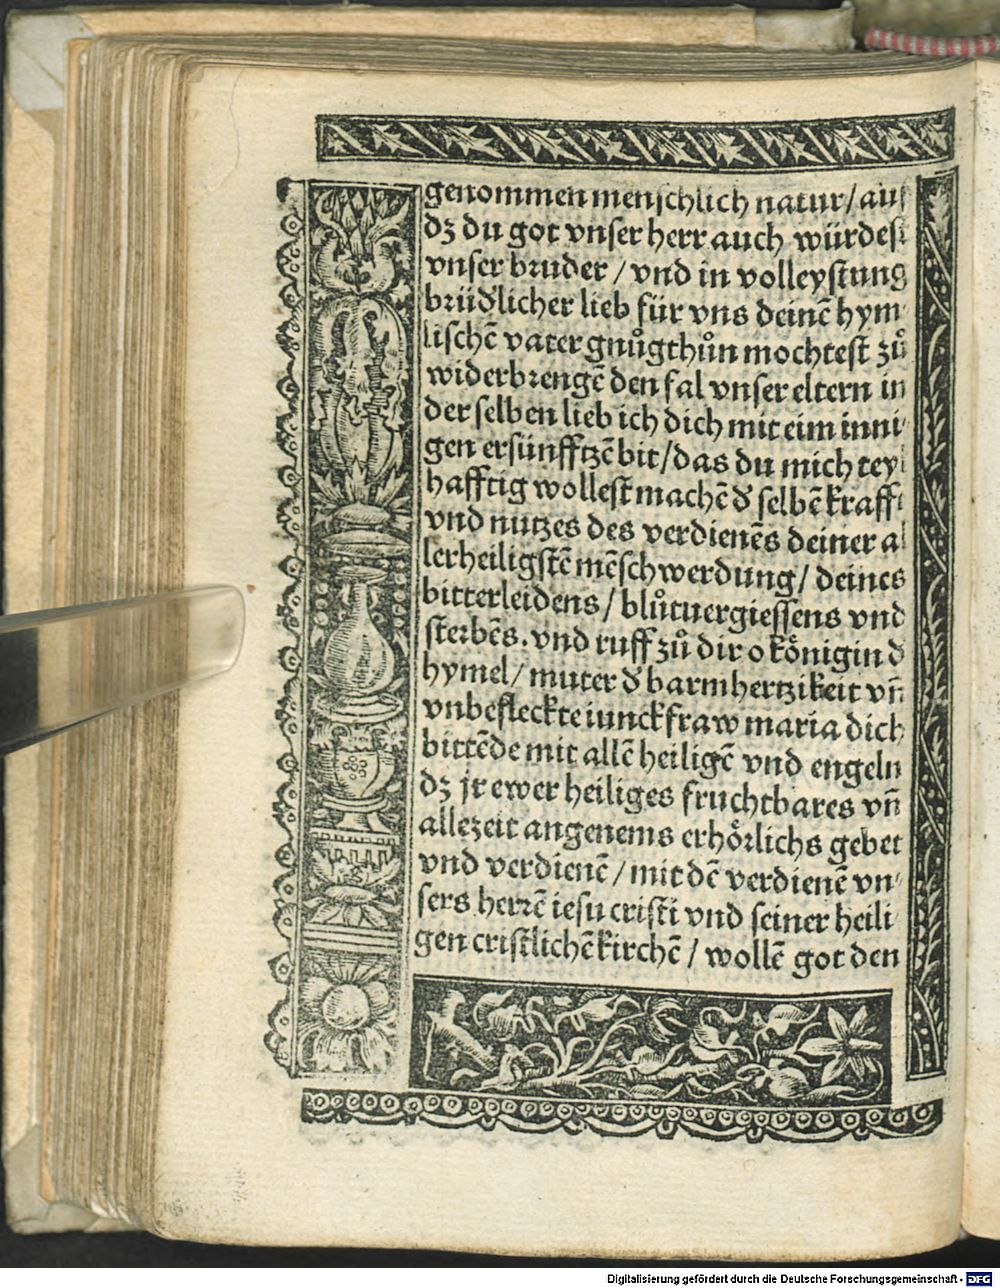 genommen menschlich natur/ auf
dz du got vnser herr auch würdest
vnser bruder / vnd in volleystung
brüd'licher lieb für vns deinē hym
lischē vater gnůgthůn mochtest zů
widerbrengē den fal vnser eltern in
der selben lieb ich dich mit eim inni
gen ersünfftzē bit/ das du mich teyl
hafftig wollest machē d' selbē krafft
vnd nutzes des verdienēs deiner al
lerheiligstē mēschwerdung/ deines
bitterleidens/ blůtuergiessens vnd
sterbēs. vnd ruff zů dir o kồnigin d'
hymel/ muter d' barmhertzikeit vn̄
vnbefleckte iunckfraw maria dich
bittēde mit allē heiligē vnd engeln
dz jr ewer heiliges fruchtbares vn̄
allezeit angenems erhoͤrlichs gebet
vnd verdienē / mit dē verdienē vn
sers herrē iesu cristi vnd seiner heili
gen cristlichē kirchē / wollē got den
Digitalisierung gefördert durch die Deutsche Forschungsgemeinschaft - DFG